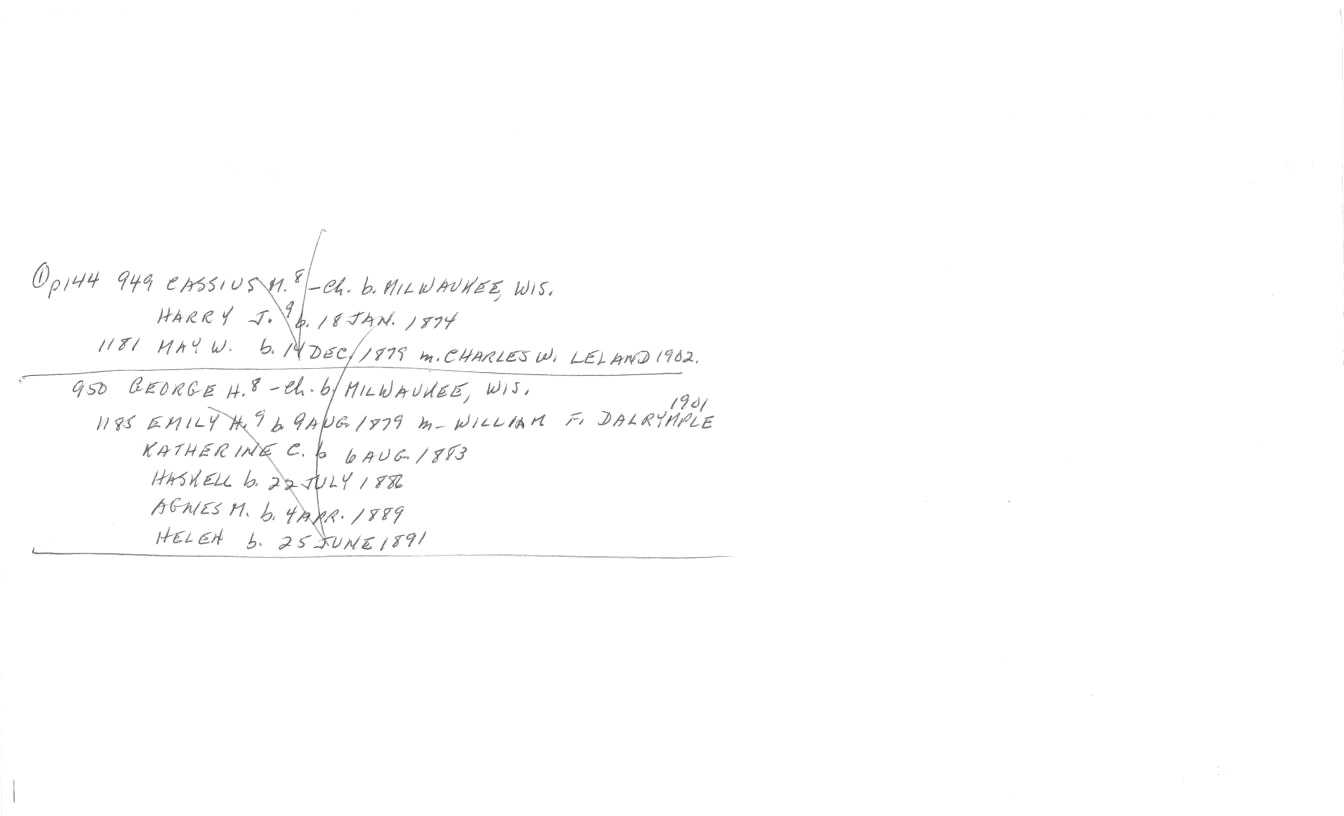 ① p144 949 CASSIUS M.⁸ - Ch. b. MILWAUKEE, WIS.
HARRY J.⁹ b. 18 JAN. 1874
1181 MAY W. b. 14 DEC. 1879 m. CHARLES W. LELAND 1902.
950 GEORGE H.⁸ - Ch. b MILWAUKEE, WIS.
1901
1185 EMILY H.⁹ b 9 AUG. 1879 m- WILLIAM F. DALRYMPLE
KATHERINE C. b 6 AUG. 1883
HASKELL b. 22 JULY 1886
AGNES M. b. 4 APR. 1889
HELEN b. 25 JUNE 1891